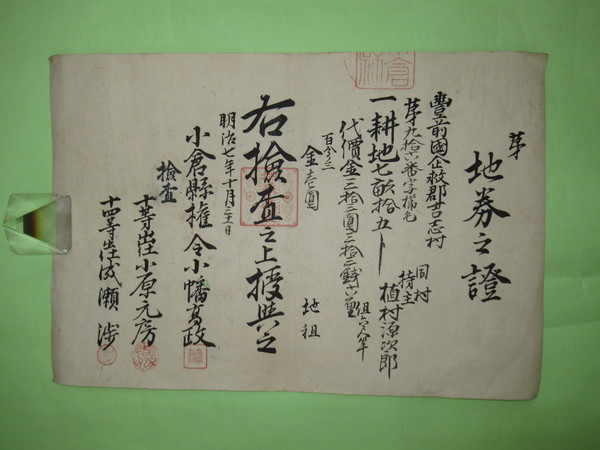 第
地券之證
豐前國企救郡吉志村
第九拾六番字掃毛
同村
持主 植村源次郎
一耕地七畝拾五卜
代價金三拾三圓三拾三錢
百分三
金壱圓
地租
右撿査之上授與之
明治七年十月三十日
小倉縣權令小幡高政
撿査
十等出仕小原元房
十四等出仕成瀬渉